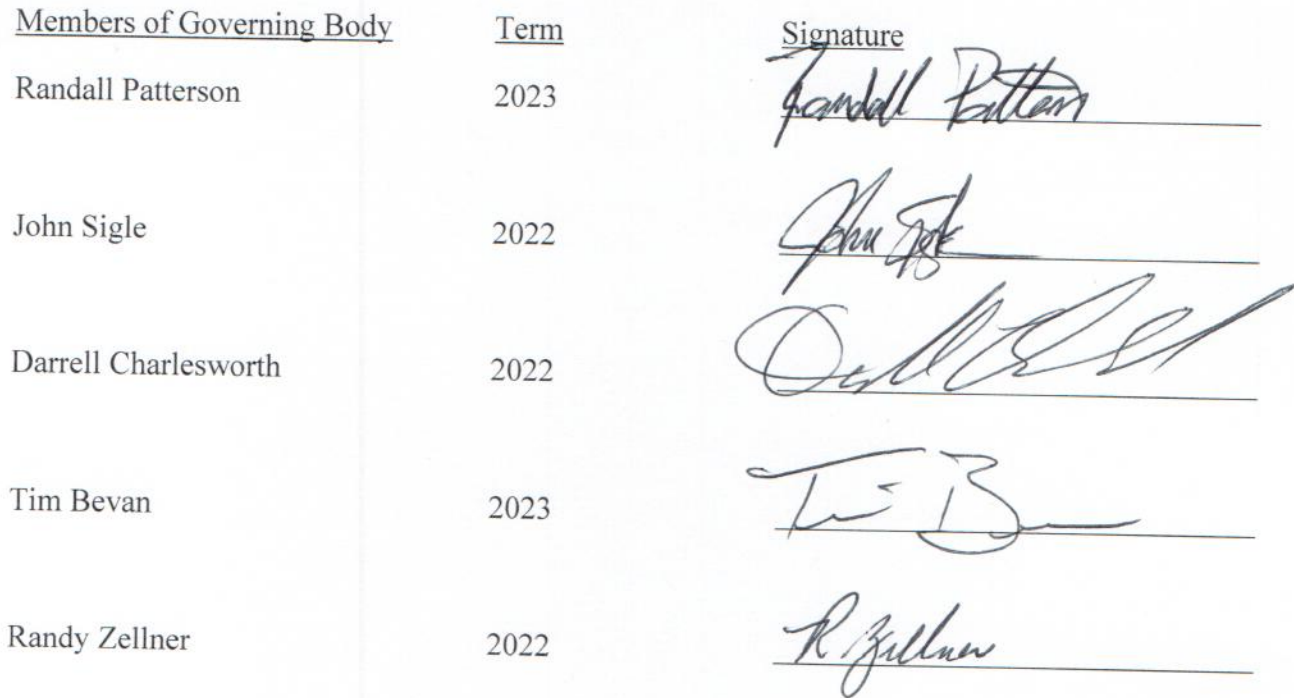 Members of Governing Body Term Signature
Randall Patterson 2023 Randall Patterson
John Sigle 2022 John Sigle
Darrell Charlesworth 2022
Tim Bevan 2023 Tim B
Randy Zellner 2022 R Zellner